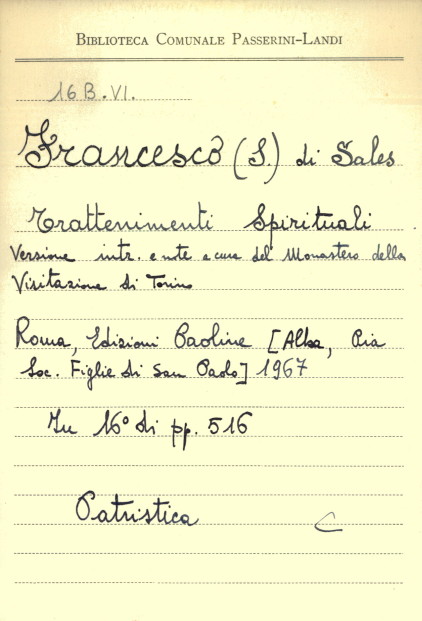 BIBLIOTECA COMUNALE PASSERINI-LANDI
16 B. VI.
Francesco (S.) di Sales
Trattenimenti Spirituali
Versione intr. e note a cura del Monastero della
Visitazione di Torino
Roma, Edizioni Paoline [Alba, Pia
Soc. Figlie di San Paolo] 1967
In 16° di pp. 516
Patristica C